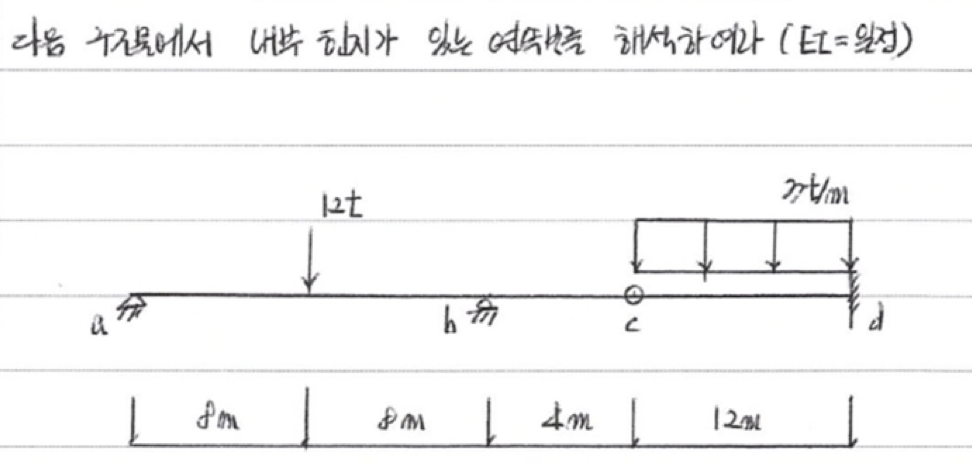 다음 구조물에서 내부 힌지가 있는 연속보를 해석하여라 (EI=일정)
12t
t/m
a
b
c
d
8m
8m
4m
12m